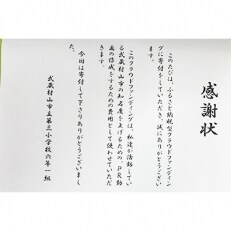 感謝状
このたびは、ふるさと納税型クラウドファンディン
グに寄付をしていただき、誠にありがとうござい
ます。
このクラウドファンディングは、私達が活動してい
る武蔵村山市の知名度を上げるための、PR動
画の作成をするための費用として使わせていただ
きます。
今回は寄付して下さりありがとうございまし
た。
武蔵村山市立第三小学校六年一組